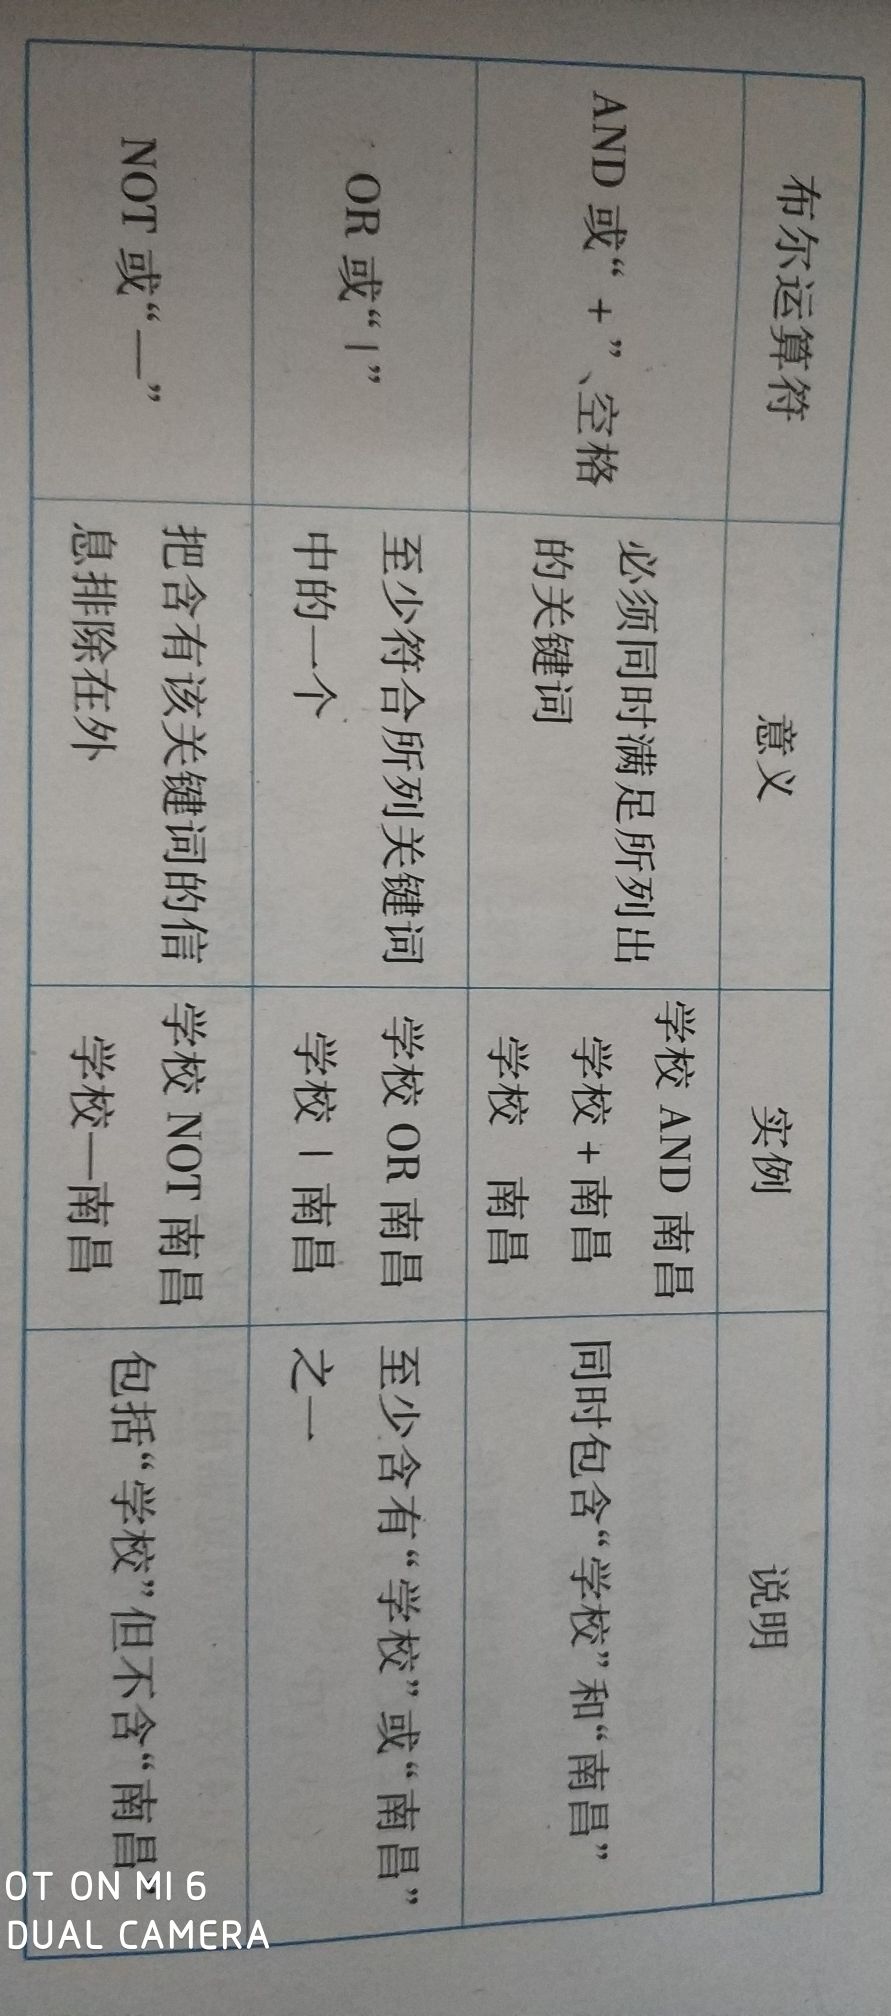 布尔运算符
意义
实例
说明
AND 或“+”、空格
必须同时满足所列出
的关键词
学校 AND 南昌
学校+南昌
学校 南昌
同时包含“学校”和“南昌”
OR 或“|”
至少符合所列关键词
中的一个
学校 OR 南昌
学校 | 南昌
至少含有“学校”或“南昌”
之一
NOT 或“—”
把含有该关键词的信
息排除在外
学校 NOT 南昌
学校—南昌
包括“学校”但不含“南昌”
OT ON MI 6
DUAL CAMERA